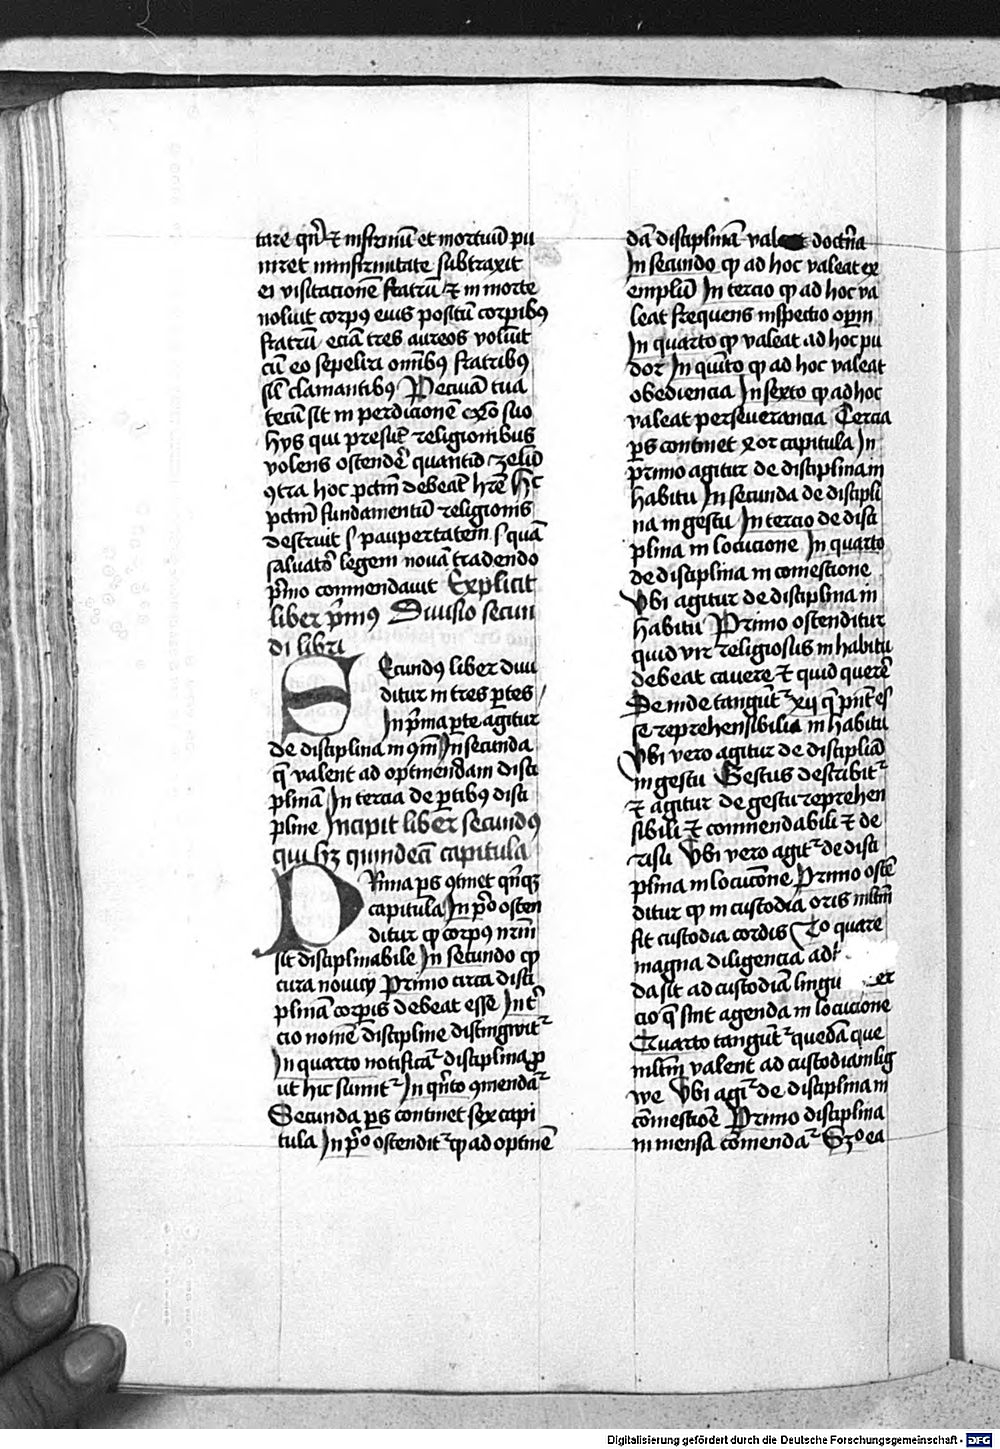 tare qn̄ ⁊ infirmū et mortuū pu
niret in infirmitate subtraxit
ei visitacionē fratrū ⁊ in morte
noluit corpꝰ eius positū corpibꝰ
fratrū eciā tres aureos voluit
cū eo sepeliri om̄ibꝰ fratribꝰ
sil̄ clamantibꝰ Pecuīa tua
tecū sit in perdicionē
hys qui presūt religionibus
volens ostendē quantū zelū
ꝯtra hoc pctm̄ debeāt hrē hc̄
pctm̄ fundamentū religionis
destruit s paupertatem s quā
saluator legem nouā tradendo
pͥmo commendauit Explicit
liber pͥmꝰ Diuisio secun
di libri
Secundus liber diui
ditur in tres ꝑtes /
In pͥma ꝑte agitur
de disciplina in ꝯm̄i In secunda
q̄ valent ad optinendam disci
plinā In tercia de ꝑtibꝰ disci
pline Incipit liber secundꝰ
qui hꝫ quindecī capitula
Prima ꝑs ꝯtinet qn̄qꝫ
capitula In pͥo osten
ditur ꝙ corpꝰ nr̄m
sit disciplinabile In secundo ꝙ
cura nouicij Primo circa disci
plinā corꝑis debeat esse In t̄
cio nomē discipline distingwitᷣ
In quarto notificaᷣ disciplina ꝓ
ut hic sumitᷣ In qn̄to ꝯmendaᷣ
Secunda ꝑs continet sex capi
tula In pͥo ostenditᷣ ꝙ ad optinē
dā disciplinā valet doctr̄ia
In secundo ꝙ ad hoc valeat ex
emplū In tercio ꝙ ad hoc va
leat frequens inspectio oꝑm
In quarto ꝙ valeat ad hoc pu
dor In quīto ꝙ ad hoc valeat
obediencia In sexto ꝙ ad hoc
valeat perseuerancia Tercia
ꝑs continet capitula In
primo agitur de disciplina in
habitu In secunda de discipli
na in gestu In tercio de disci
plina in locucione In quarto
de disciplina in comestione
Ubi agitur de disciplina in
habitu Primo ostenditur
quid vir religiosus in habitu
debeat cauere ⁊ quid querē
Deinde tangūtᷣ xij q̄ pn̄t eſ
se reprehensibilia in habitu
Ubi vero agitur de disciplīa
in gestu Gestus describitᷣ
⁊ agitur de gestu reprehen
sibili ⁊ commendabili ⁊ de
risu Ubi vero agitᷣ de disci
plina in locucōne Primo ostē
ditur ꝙ in custodia oris mltm̄
sit custodia cordis quare
magna diligencia ad
da sit ad custodiā lingu er
cio q̄ sint agenda in locucione
Quarto tangūtᷣ quedā que
mltm̄ valent ad custodiam lig
we Ubi agiᷣ de disciplina in
cōmestiōe Primo disciplina
in mensa cōmendaᷣ Scᷣdo ea
Digitalisierung gefördert durch die Deutsche Forschungsgemeinschaft - DFG